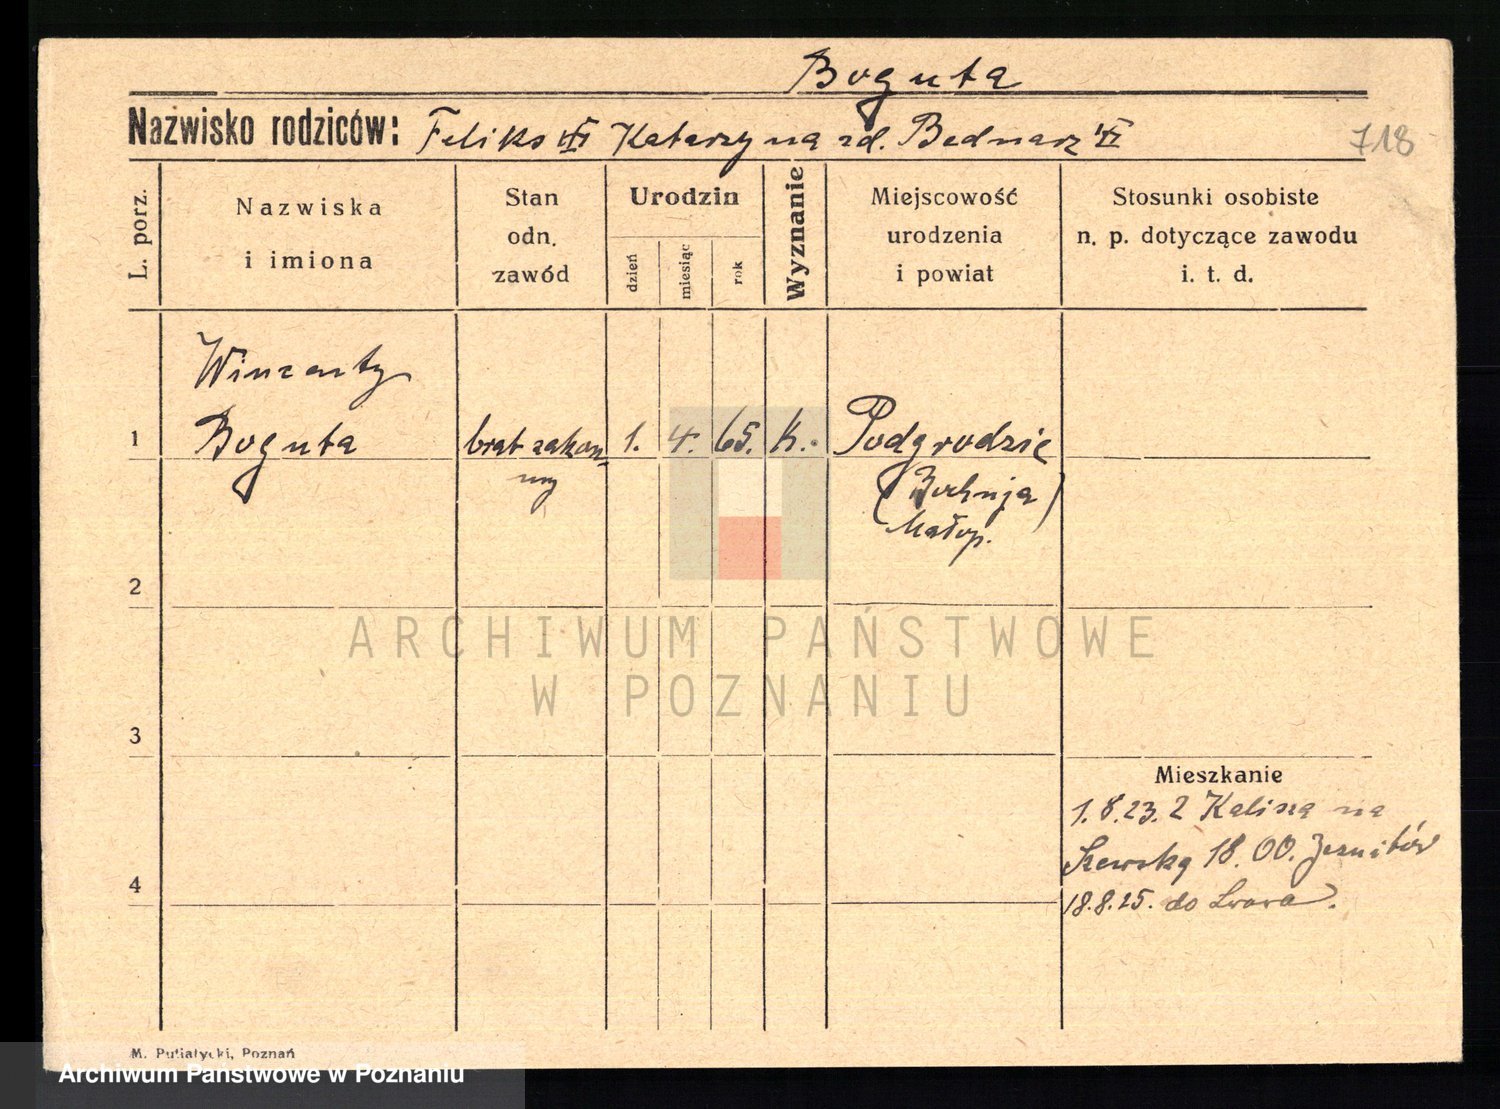 Boguta
Nazwisko rodziców: Feliks Katarzyna zd. Bednarz
718
L. porz.
Nazwiska
i imiona
Stan
odn.
zawód
Urodzin
dzień
miesiąc
rok
Wyznanie
Miejscowość
urodzenia
i powiat
Stosunki osobiste
n. p. dotyczące zawodu
i. t. d.
Wincenty
1 Boguta brat zakon- 1. 4. 65. k. Podgrodzie
ny (Bochnja
Małop.)
2
3
Mieszkanie
1.8.23. z Kalisza na
Szewską 18. OO. Jezuitów
4
18.8.25. do Lwowa.
ARCHIWUM PAŃSTWOWE
W POZNANIU
M. Putiatycki, Poznań
Archiwum Państwowe w Poznaniu